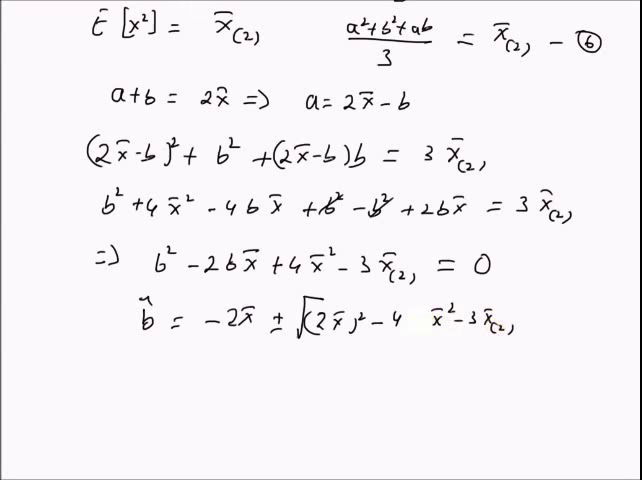 E[x²] = x̄₍₂₎ (a²+b²+ab)/3 = x̄₍₂₎ - ⑥
a+b = 2x̄ => a = 2x̄ - b
(2x̄-b)² + b² + (2x̄-b)b = 3 x̄₍₂₎
b² + 4x̄² - 4bx̄ + b² - b² + 2bx̄ = 3 x̄₍₂₎
=> b² - 2bx̄ + 4x̄² - 3x̄₍₂₎ = 0
b̂ = -2x̄ ± √(2x̄)² - 4 x̄² - 3x̄₍₂₎